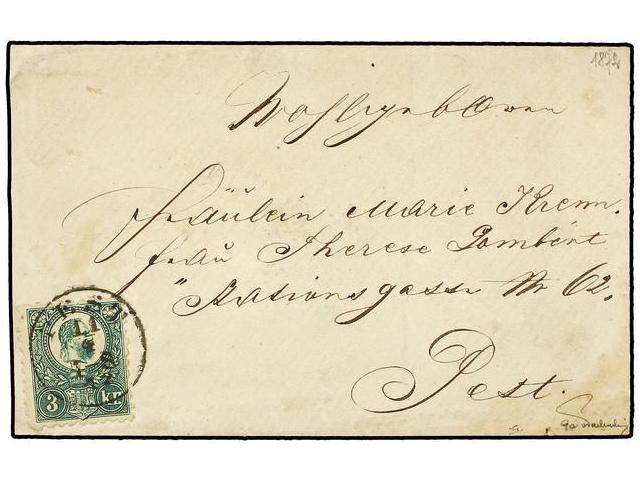 1872
Wohlgeboren
Fräulein Marie Kremm.
Frau Therese Lombért
"Stationsgasse Nr 62.
Pest.
PEST
3 kr.